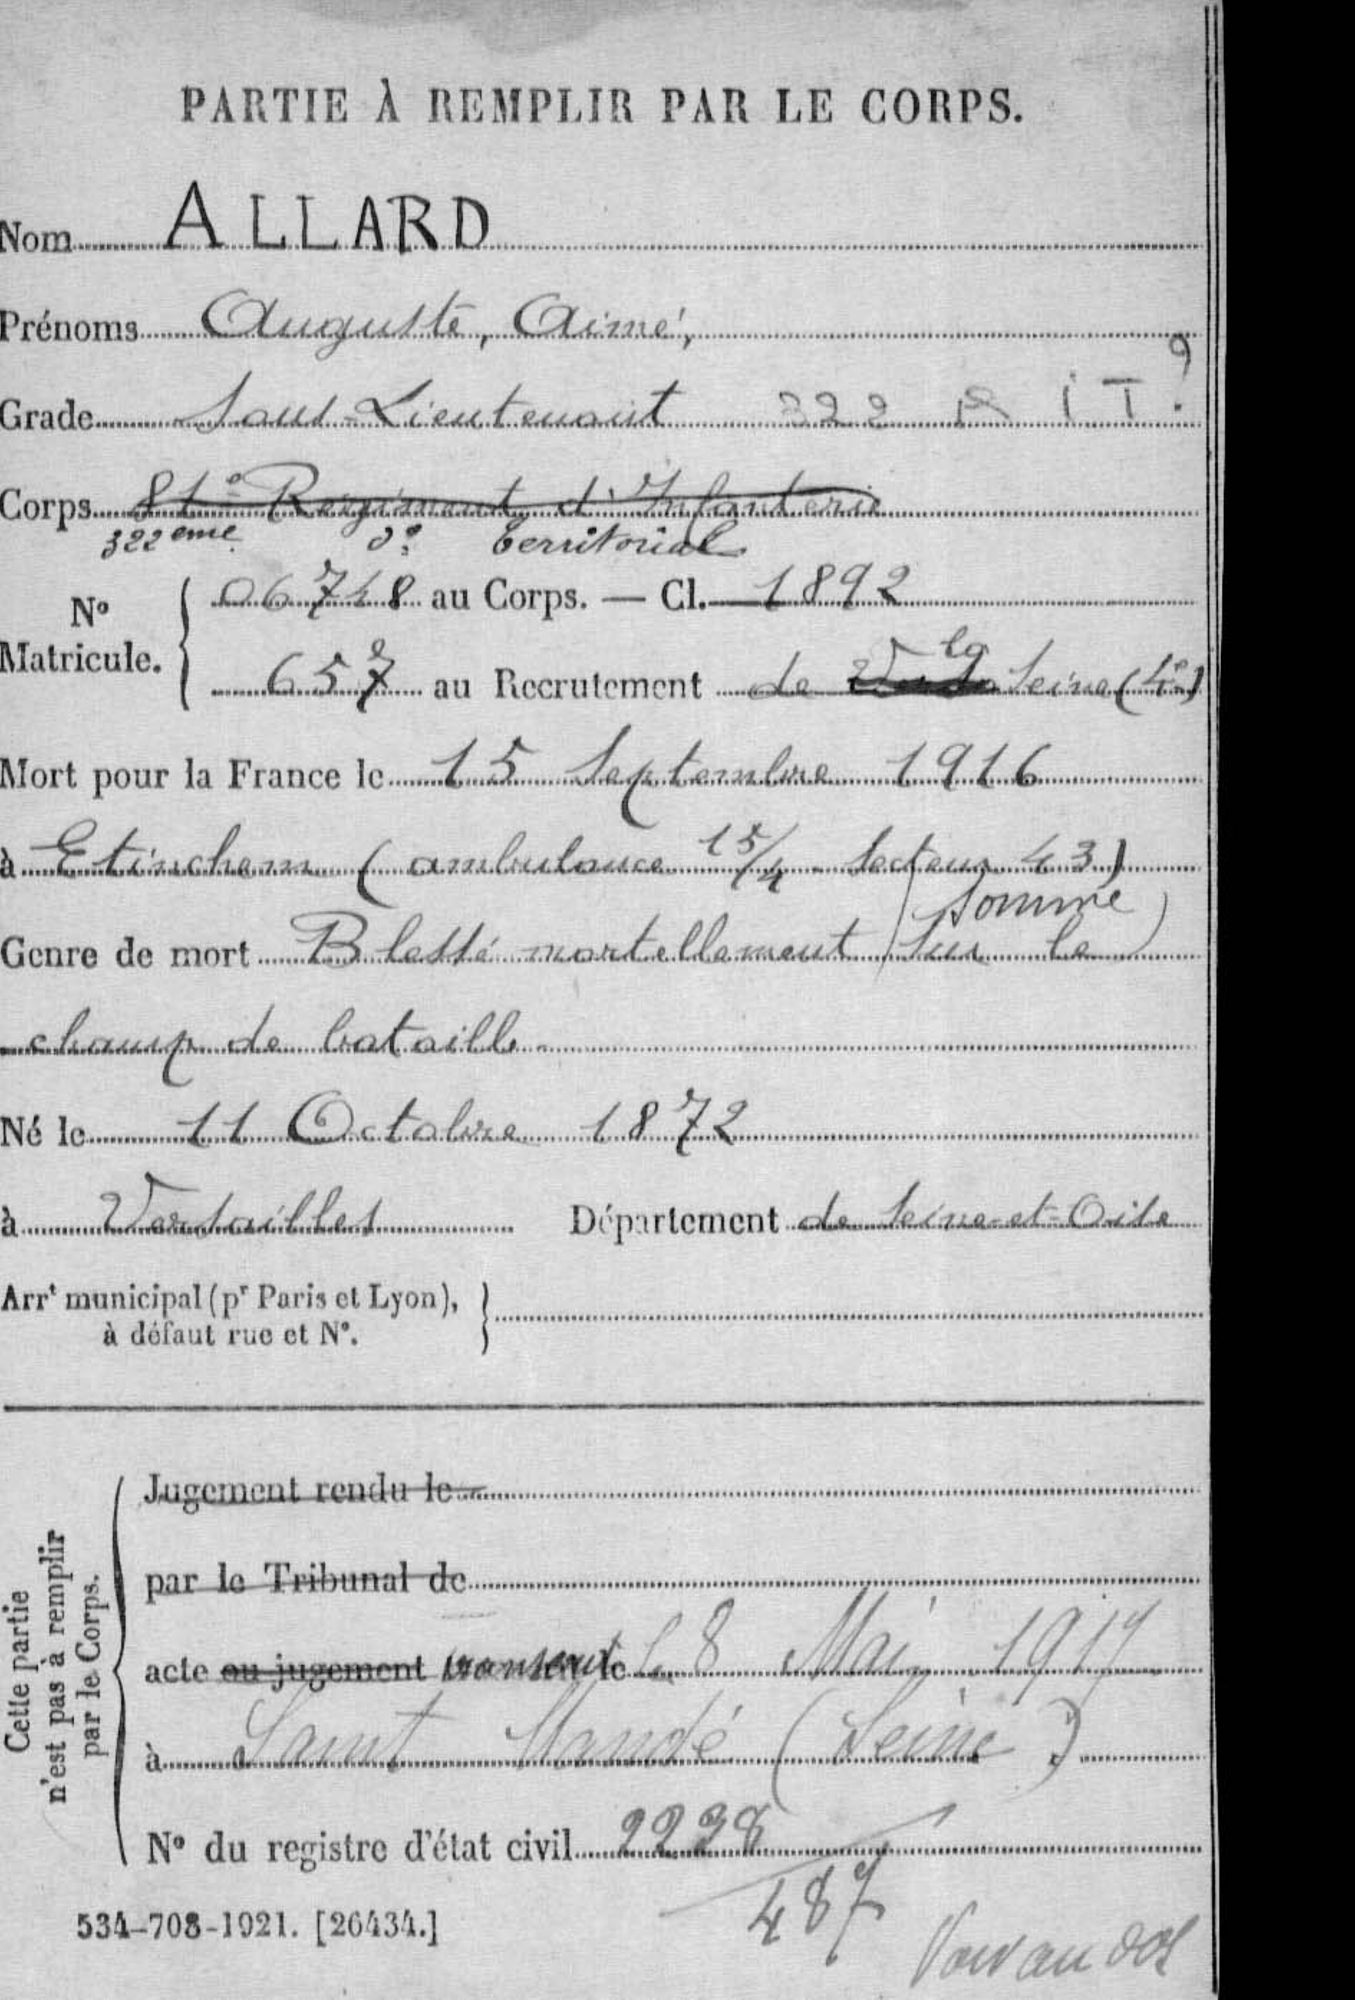 PARTIE À REMPLIR PAR LE CORPS.
Nom ALLARD
Prénoms Auguste, Aimé,
Grade Sous-Lieutenant 322 R I T ?
Corps 81e Régiment d'Infanterie
322ème do Territorial
No Matricule. 06718 au Corps. — Cl. 1892
657 au Recrutement de la Seine (4e)
Mort pour la France le 15 Septembre 1916
à Etinehem (ambulance 15/4 - Secteur 43)
(Somme)
Genre de mort Blessé mortellement sur le
champ de bataille
Né le 11 Octobre 1872
à Versailles Département de Seine-et-Oise
Arrt municipal (pr Paris et Lyon),
à défaut rue et No.
Cette partie
n'est pas à remplir
par le Corps.
Jugement rendu le
par le Tribunal de
acte ou jugement transcrit le le 8 Mai 1917
à Saint Mandé (Seine)
No du registre d'état civil 2238
487
534-708-1921. [26434.]
Voir au dos